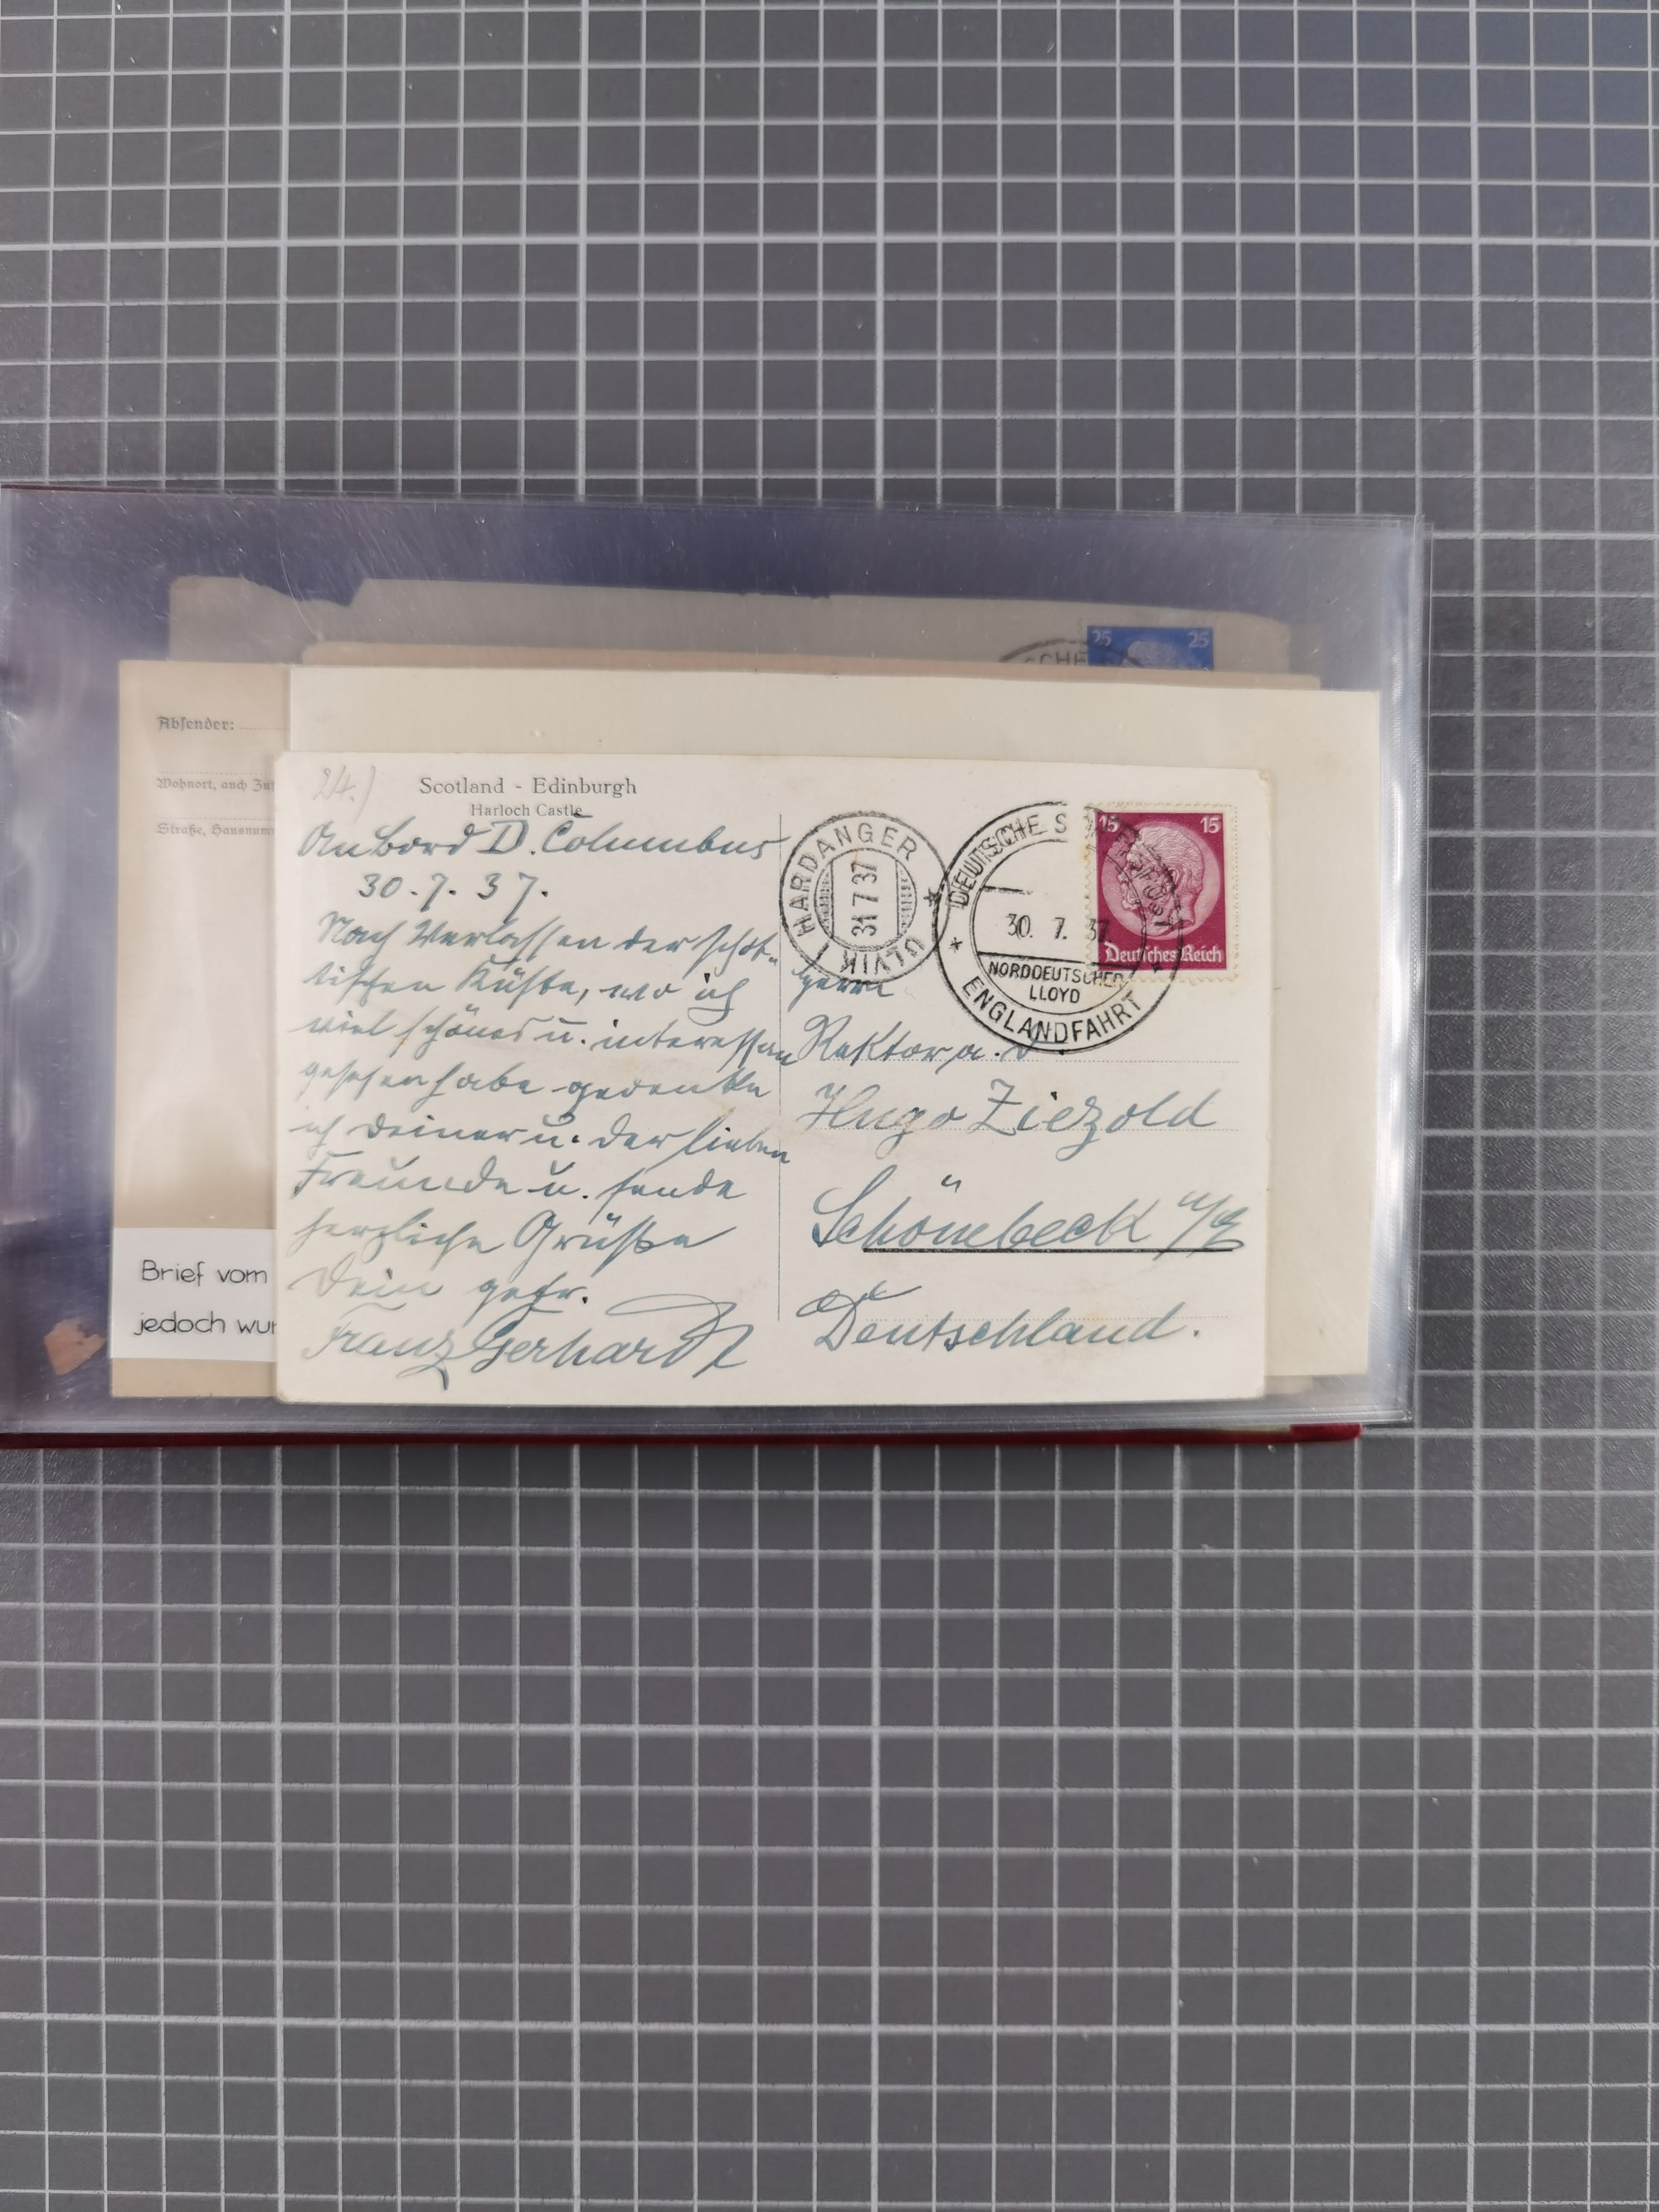 25 25
SCHE
Absender:
Wohnort, auch
Straße, Hausnum
Brief vom
jedoch wur
24.)
Scotland - Edinburgh
Harloch Castle
An Bord D. Columbus
30.7.37.
Nach Verlassen der schot-
tischen Küste, wo ich
viel schönes u. interessan
gesehen habe gedenke
ich deiner u. der lieben
Freunde u. sende
herzliche Grüße
Dein getr.
Franz Gerhardt
ULVIK I HARDANGER
31 7 37
DEUTSCHE S
30. 7. 37
NORDDEUTSCHER
LLOYD
ENGLANDFAHRT
15 15
Deutsches Reich
Herrn
Rektor a. D.
Hugo Ziezold
Schönebeck a/E
Deutschland.